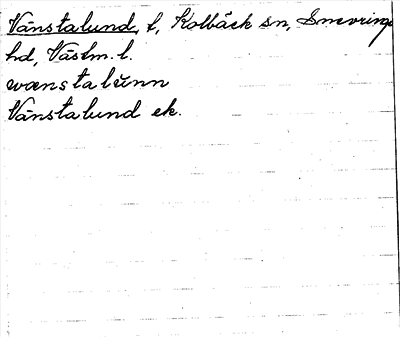 Vänstalund, t, Kolbäck sn, Snevringe
hd, Västm. l.
wænstalŭnn
Vänstalund ek.